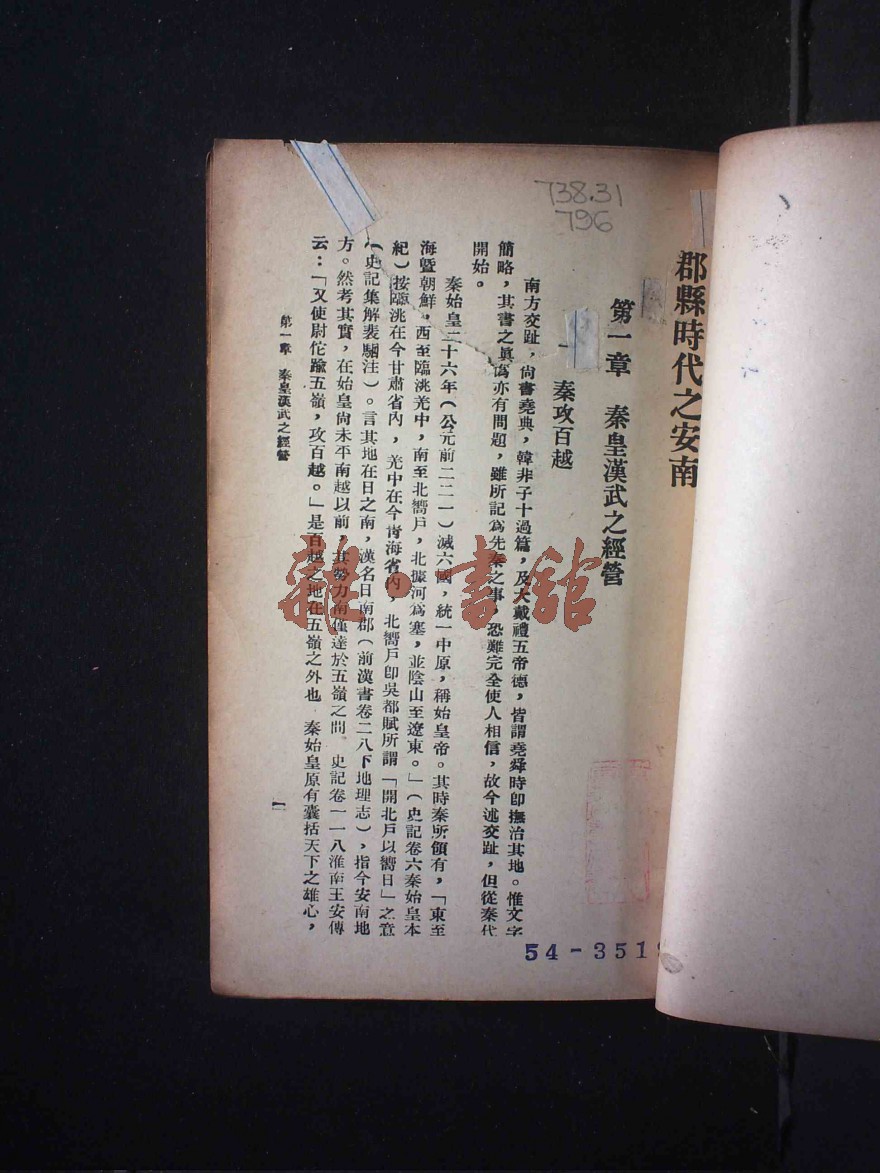 738.31
796
郡縣時代之安南
第一章　秦皇漢武之經營
一　秦攻百越
南方交趾，尚書堯典，韓非子十過篇，及大戴禮五帝德，皆謂堯舜時卽撫治其地。惟文字
簡略，其書之眞僞亦有問題，雖所記爲先秦之事，恐難完全使人相信，故今述交趾，但從秦代
開始。
秦始皇二十六年（公元前二二一）滅六國，統一中原，稱始皇帝。其時秦所領有，「東至
海暨朝鮮，西至臨洮羌中，南至北嚮戶，北據河爲塞，並陰山至遼東。」（史記卷六秦始皇本
紀）按臨洮在今甘肅省內，羌中在今靑海省內，北嚮戶卽吳都賦所謂「開北戶以嚮日」之意
（史記集解裴駰注）。言其地在日之南，漢名日南郡（前漢書卷二八下地理志），指今安南地
方。然考其實，在始皇尚未平南越以前，其勢力南僅達於五嶺之間　史記卷一一八淮南王安傳
云：「又使尉佗踰五嶺，攻百越。」是百越之地在五嶺之外也　秦始皇原有囊括天下之雄心，
第一章　秦皇漢武之經營
一
雜·書館
54-351